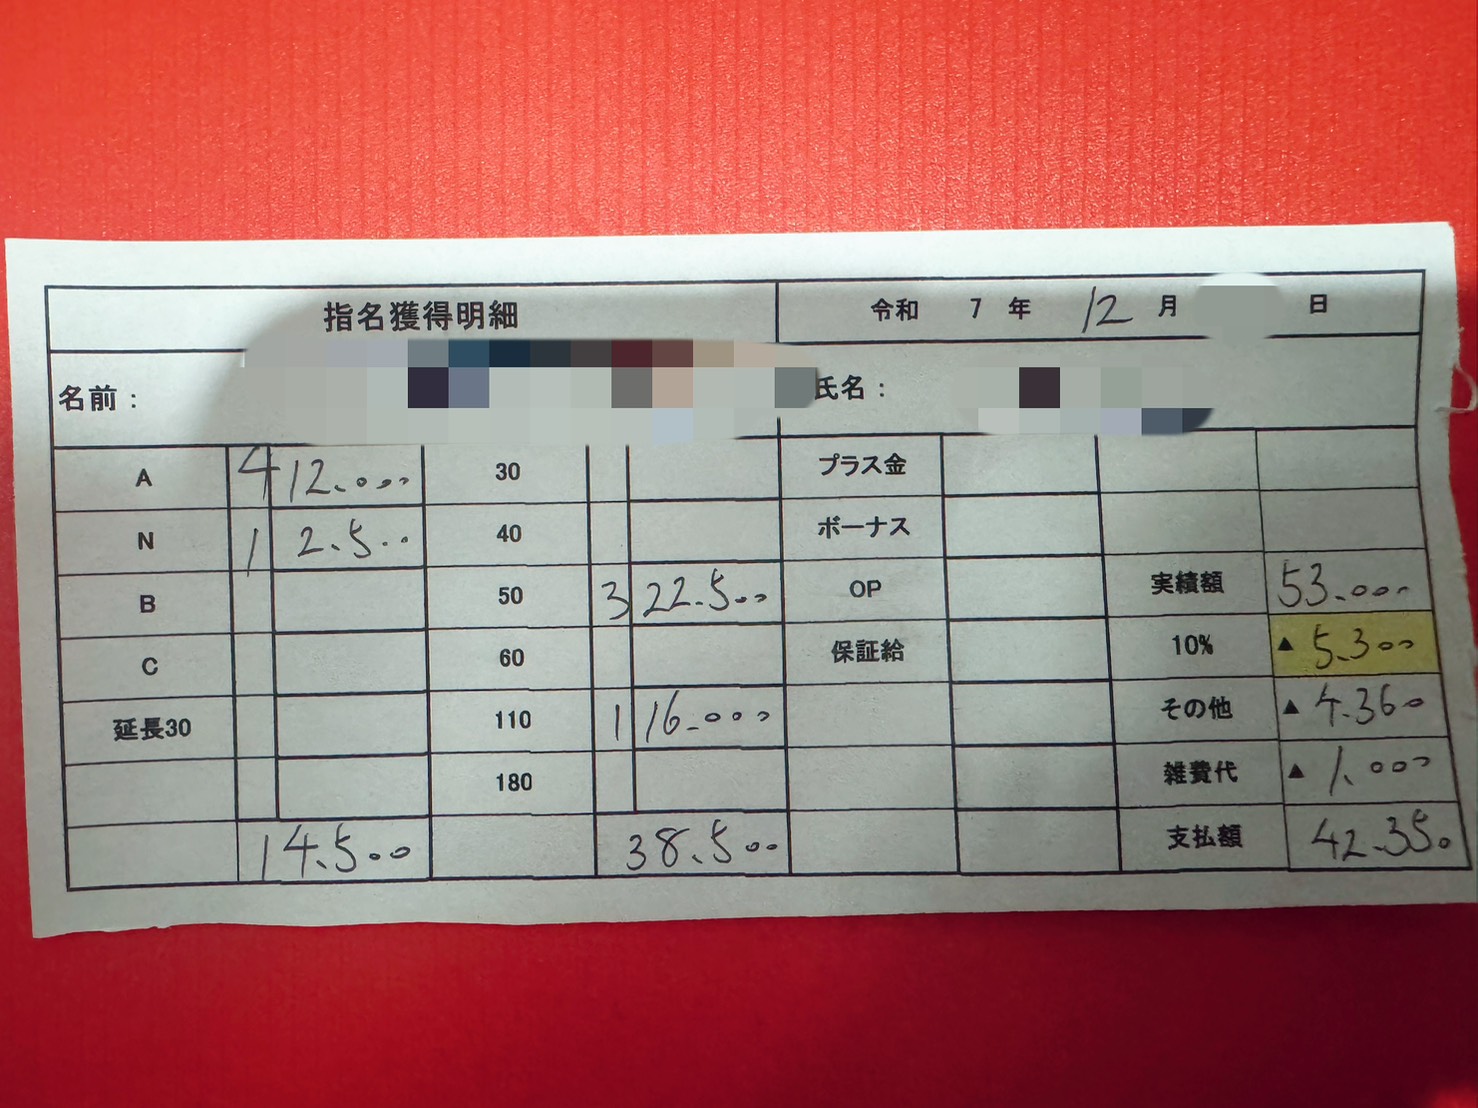 指名獲得明細 令和 7 年 12 月 日
名前： 氏名：
A 4 12.000 30 プラス金
N 1 2.500 40 ボーナス
B 50 3 22.500 OP 実績額 53.000
C 60 保証給 10% ▲ 5.300
延長30 110 1 16.000 その他 ▲ 4.360
180 雑費代 ▲ 1.000
14.500 38.500 支払額 42.350